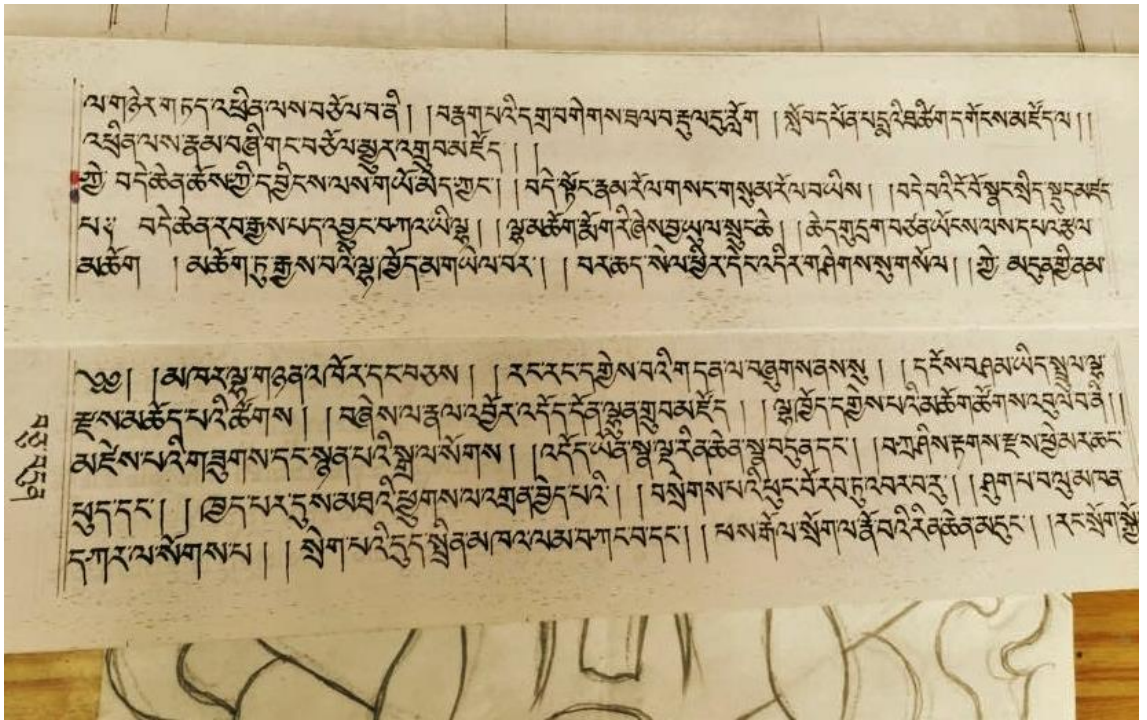 ལ་གཉེར་གཏད་འཕྲིན་ལས་བཅོལ་བ་ནི། །བརྣག་པའི་དགྲ་བགེགས་ཐལ་བ་རྡུལ་དུ་རློག །སློབ་དཔོན་པདྨའི་ཐ་ཚིག་དགོངས་མཛོད་ལ། །
འཕྲིན་ལས་རྣམ་བཞི་གང་བཅོལ་མྱུར་འགྲུབ་མཛོད། །
ཀྱེ་ བདེ་ཆེན་ཆོས་ཀྱི་དབྱིངས་ལས་གཡོ་མེད་ཀྱང་། །བདེ་སྟོང་རྣམ་རོལ་གསང་གསུམ་རོལ་བ་ཡིས། །བདེ་བའི་ངོ་བོ་སྣང་སྲིད་སྡུད་མཛད་
པ༔ བདེ་ཆེན་རབ་རྒྱས་པད་འབྱུང་བཀའ་ཡི་ལྷ། །ལྷ་མཆོག་རྨོག་རི་ཞེས་བྱ་ཡུལ་སྲུང་ཆེ། །ཆེད་གུ་དྲག་བཙན་ཡོངས་ལས་དཔའ་རྩལ་
མཆོག །མཆོག་ཏུ་རྒྱས་པའི་ལྷ་ཁྱོད་མ་གཡེལ་བར་། །བར་ཆད་སེལ་ཕྱིར་དེང་འདིར་གཤེགས་སུ་གསོལ། །ཀྱེ་ མདུན་གྱི་ནམ་
༄༅། །མཁར་ལྷ་གཉན་འཁོར་དང་བཅས། །རང་རང་དགྱེས་བའི་གདན་ལ་བཞུགས་ནས་སུ། །དངོས་བཤམ་ཡིད་སྤྲུལ་ལྷ་
རྫས་མཆོད་པའི་ཚོགས། །བཞེས་ལ་རྣལ་འབྱོར་འདོད་དོན་ལྷུན་གྲུབ་མཛོད། །ལྷ་ཁྱོད་དགྱེས་པའི་མཆོག་ཚོགས་འབུལ་བ་ནི། །
མཛེས་པའི་གཟུགས་དང་སྙན་པའི་སྒྲ་ལ་སོགས། །འདོད་ཡོན་སྣ་ལྔ་རིན་ཆེན་སྣ་བདུན་དང་། །བཀྲ་ཤིས་རྟགས་རྫས་ཕྱེ་མར་ཆང་
ཕུད་དང་། །ཁྱད་པར་དུས་མཐའི་ཕྱུགས་ལ་འགྲན་བྱེད་པའི། །བསྲེགས་པའི་ཕུང་པོ་རབ་ཏུ་འབར་བ་རུ། །ཤུག་པ་བལུ་མ་ཁན་
དཀར་ལ་སོགས་པ། །སྲེག་པའི་དུད་སྤྲིན་མཁའ་ལམ་བཀང་བ་དང་། །ཕས་རྒོལ་སྲོག་ལ་རྔོ་བའི་རིན་ཆེན་མདུང་། །རང་སྲོག་སྐྱོ་
བཅུ་བདུན།